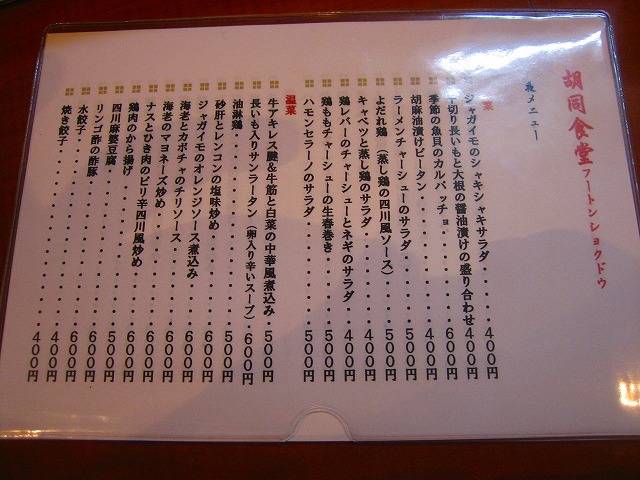 胡同食堂フートンショクドウ
夜メニュー
菜
ジャガイモのシャキシャキサラダ・・・・・400円
千切り長いもと大根の醤油漬けの盛り合わせ400円
季節の魚貝のカルパッチョ・・・・・・・・600円
胡麻油漬けピータン・・・・・・・・・・・400円
ラーメンチャーシューのサラダ・・・・・・500円
よだれ鶏（蒸し鶏の四川風ソース）・・・・500円
キャベツと蒸し鶏のサラダ・・・・・・・・400円
鶏レバーのチャーシューとネギのサラダ・・400円
鶏ももチャーシューの生春巻き・・・・・・500円
ハモンセラーノのサラダ・・・・・・・・・500円
温菜
牛アキレス腱＆牛筋と白菜の中華風煮込み・500円
長いも入りサンラータン（卵入り辛いスープ）・600円
油淋鶏・・・・・・・・・・・・・・・・・500円
砂肝とレンコンの塩味炒め・・・・・・・・500円
ジャガイモのオレンジソース煮込み・・・・600円
海老とカボチャのチリソース・・・・・・・600円
海老のマヨネーズ炒め・・・・・・・・・・600円
ナスとひき肉のピリ辛四川風炒め・・・・・600円
鶏肉のから揚げ・・・・・・・・・・・・・500円
四川麻婆豆腐・・・・・・・・・・・・・・600円
リンゴ酢の酢豚・・・・・・・・・・・・・600円
水餃子・・・・・・・・・・・・・・・・・400円
焼き餃子・・・・・・・・・・・・・・・・400円